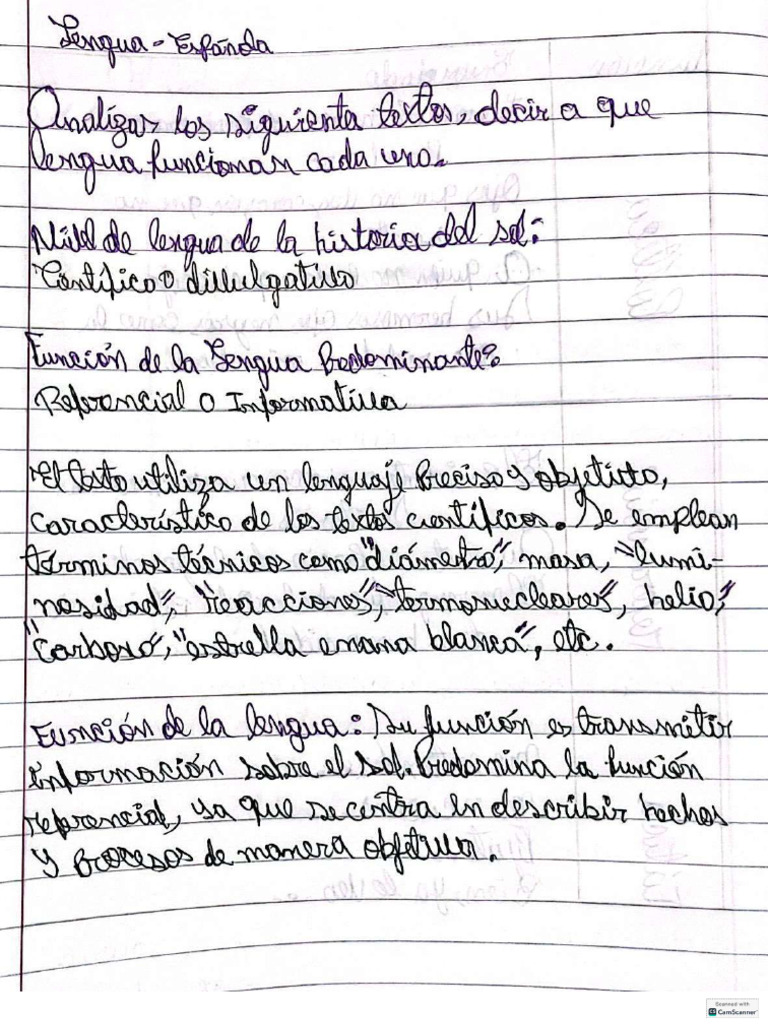 Lengua - Española
Analizar los siguienta textos, decir a que
lengua funcionan cada uno.
Nivel de lengua de la historia del sol:
Científico o divulgativo
Función de la lengua Predominante:
Referencial o Informativa
El texto utiliza un lenguaje Preciso y objetivo,
característico de los textos científicos. Se emplean
términos técnicos como "diámetro", masa, "lumi-
nosidad", "reacciones", "termonucleares", helio,"
"carbono", "estrella enana blanca", etc.
Función de la lengua: Su función es transmitir
información sobre el sol. Predomina la función
referencial, ya que se centra en describir hechos
y Procesos de manera objetiva.
Scanned with
CS CamScanner